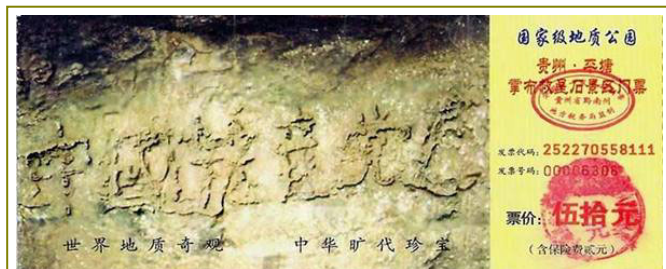 中國共産党亡
世界地质奇观 中华旷代珍宝
国家级地质公园
贵州·平塘
掌布救星石景区门票
贵州省黔南州
地方税务局监制
发票代码：252270558111
发票号码：00006308
票价：伍拾元
（含保险费贰元）